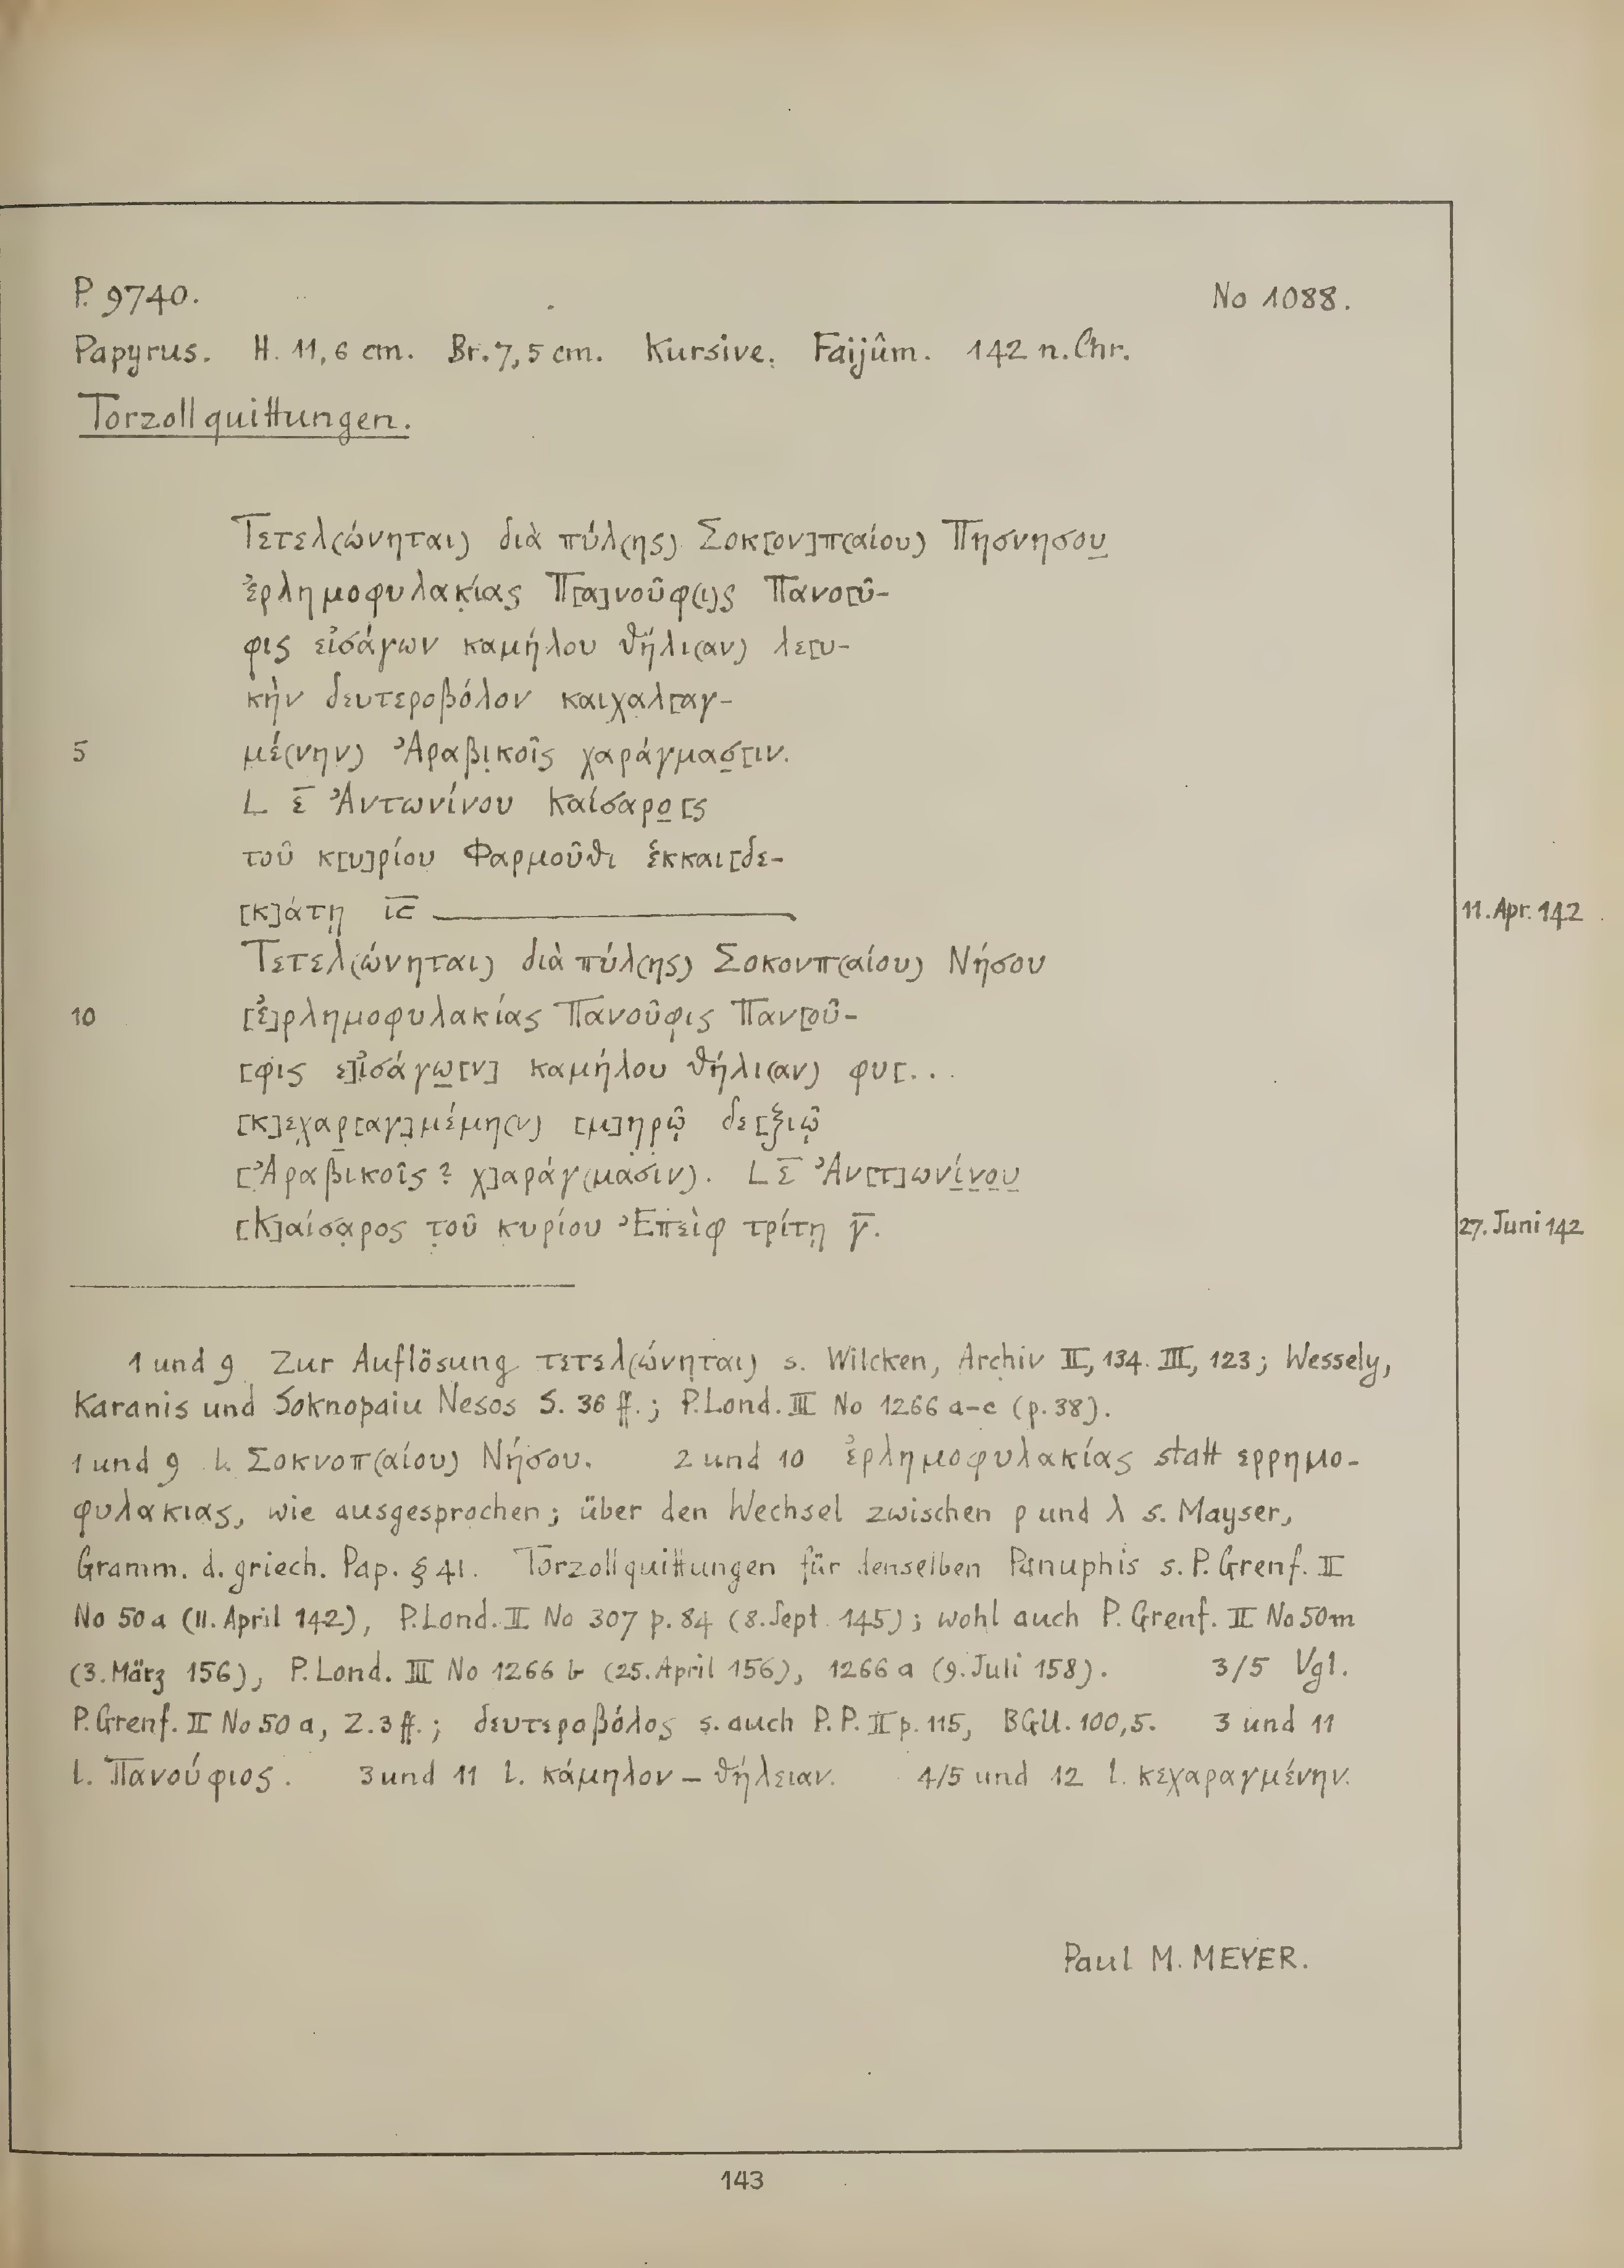 P. 9740. No 1088.
Papyrus. H. 11,6 cm. Br. 7,5 cm. Kursive. Faijûm. 142 n. Chr.
Torzollquittungen.
Τετελ(ώνηται) διὰ πύλ(ης) Σοκ[ον]π(αίου) Πησνησου
ἐρλημοφυλακίας Π[α]νοῦφ(ι)ς Πανο[ῦ-
φις εἰσάγων καμήλου θήλι(αν) λε[υ-
κὴν δευτεροβόλον καιχαλ[αγ-
5 μέ(νην) Ἀραβικοῖς χαράγμασ[ιν.
L ε̅ Ἀντωνίνου Καίσαρο[ς
τοῦ κ[υ]ρίου Φαρμοῦθι ἑκκαι[δε-
[κ]άτῃ ι̅ϛ̅ 11. Apr. 142
Τετελ(ώνηται) διὰ πύλ(ης) Σοκονπ(αίου) Νήσου
10 [ἐ]ρλημοφυλακίας Πανοῦφις Παν[οῦ-
[φις ε]ἰσάγω[ν] καμήλου θήλι(αν) φυ[. . .
[κ]εχαρ[αγ]μέμη(ν) [μ]ηρῷ δε[ξιῷ
[Ἀραβικοῖς? χ]αράγ(μασιν). L ε̅ Ἀν[τ]ωνίνου
[Κ]αίσαρος τοῦ κυρίου Ἐπεὶφ τρίτῃ γ̅. 27. Juni 142
1 und 9 Zur Auflösung τετελ(ώνηται) s. Wilcken, Archiv II, 134. III, 123; Wessely,
Karanis und Soknopaiu Nesos S. 36 ff.; P. Lond. III No 1266 a-c (p. 38).
1 und 9 l. Σοκνοπ(αίου) Νήσου. 2 und 10 ἐρλημοφυλακίας statt ερρημο-
φυλακιας, wie ausgesprochen; über den Wechsel zwischen ρ und λ s. Mayser,
Gramm. d. griech. Pap. § 41. Torzollquittungen für denselben Panuphis s. P. Grenf. II
No 50 a (11. April 142), P. Lond. II No 307 p. 84 (8. Sept. 145); wohl auch P. Grenf. II No 50 m
(3. März 156), P. Lond. III No 1266 b (25. April 156), 1266 a (9. Juli 158). 3/5 Vgl.
P. Grenf. II No 50 a, Z. 3 ff.; δευτεροβόλος s. auch P. P. II p. 115, BGU. 100,5. 3 und 11
l. Πανούφιος. 3 und 11 l. κάμηλον – θήλειαν. 4/5 und 12 l. κεχαραγμένην.
Paul M. MEYER.
143